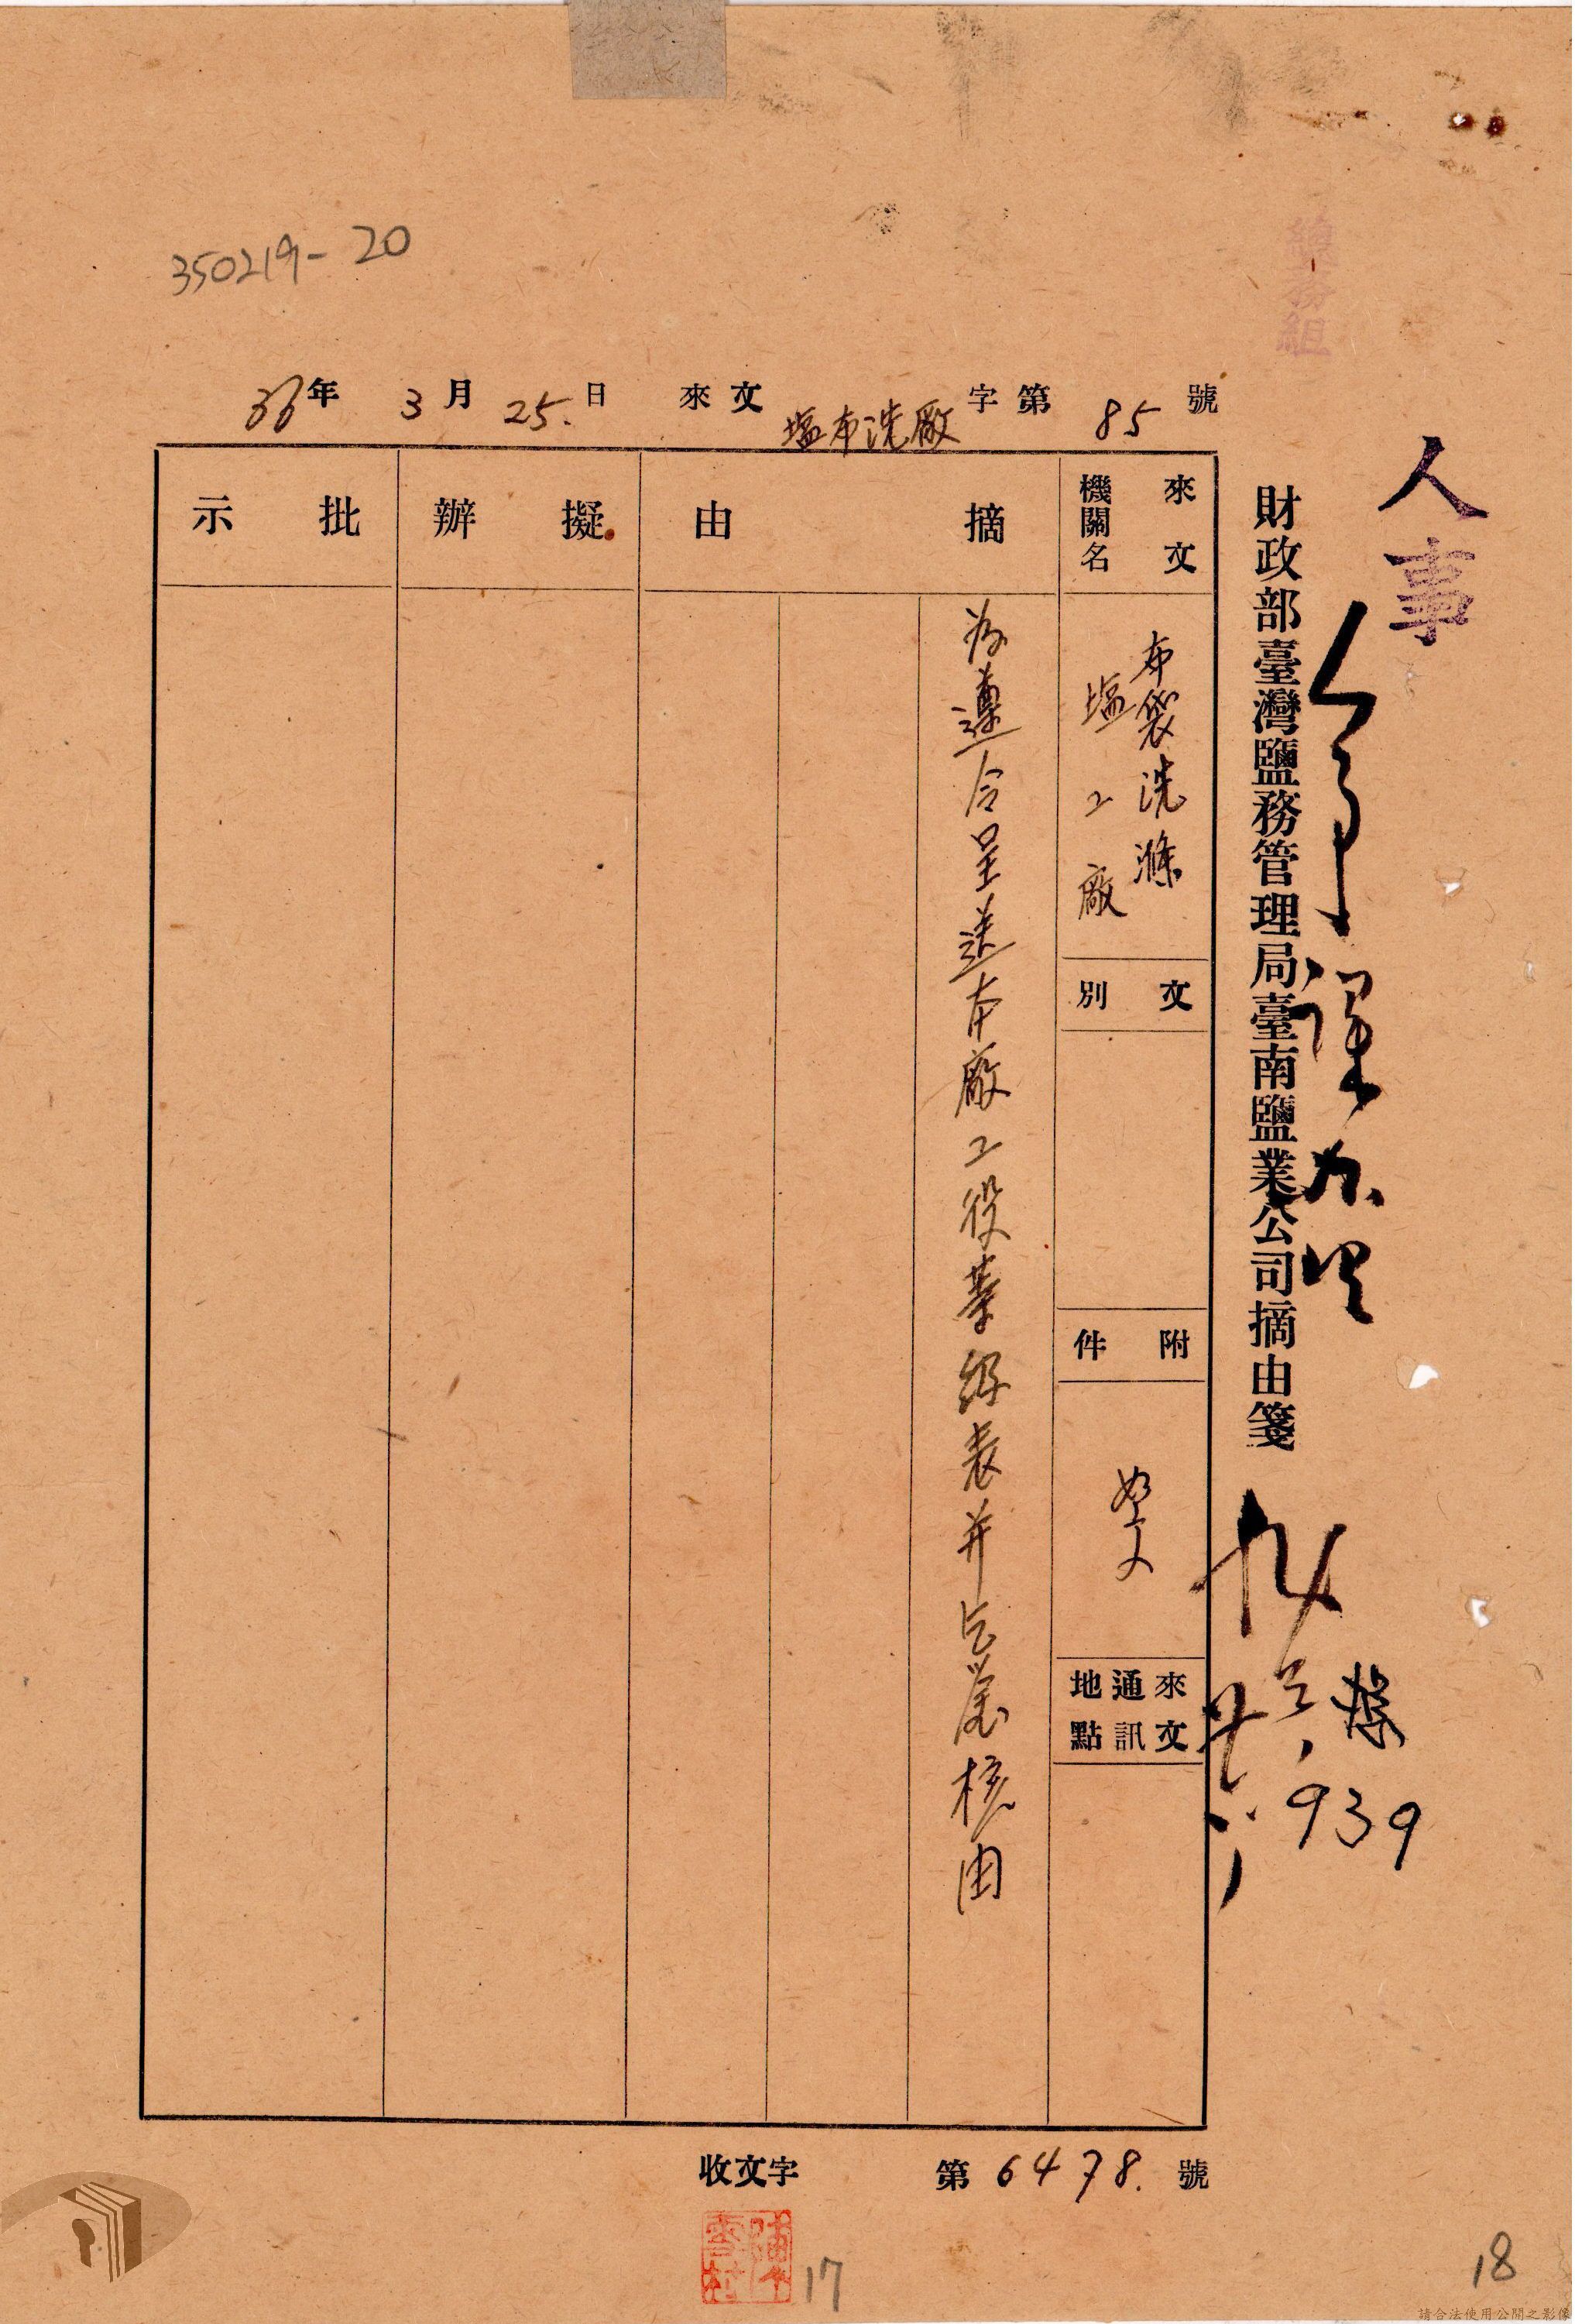 350219-20
總務組
人事
人事課办理
財政部臺灣鹽務管理局臺南鹽業公司摘由箋
939
36年3月25.日來文塩布洗廠字第85號
來文機關名
布袋洗滌
塩工廠
文別
附件
如文
來文通訊地點
摘由
為遵令呈送本廠工役等級表并乞鑒核由
擬辦
批示
收文字第6478.號
17
18
請合法使用公開之影像